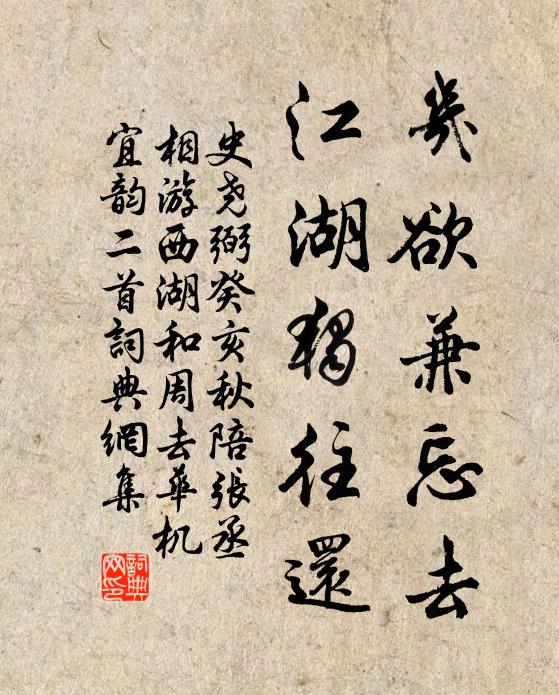 幾欲兼忘去
江湖獨往還
史尧弼癸亥秋陪張丞
相游西湖和周去華机
宜韵二首詞典網集
詞典
网印